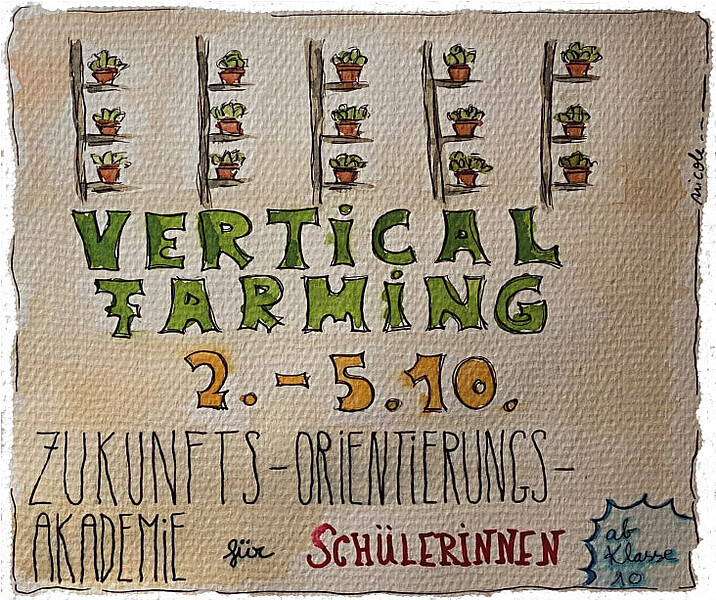 nicole
VERTICAL
FARMING
2.-5.10.
ZUKUNFTS-ORIENTIERUNGS-
AKADEMIE für SCHÜLERINNEN
ab
Klasse
10